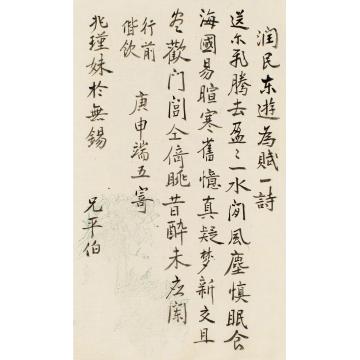 润民东遊为赋一诗
送尔飛腾去盈〻一水间風塵慎眠食
海國易暄寒舊憶真疑梦新交且
尽歡门閭仝倚眺昔醉未应闌
庚申端五寄
行前
偕飲
兆瑾妹於無錫
兄平伯